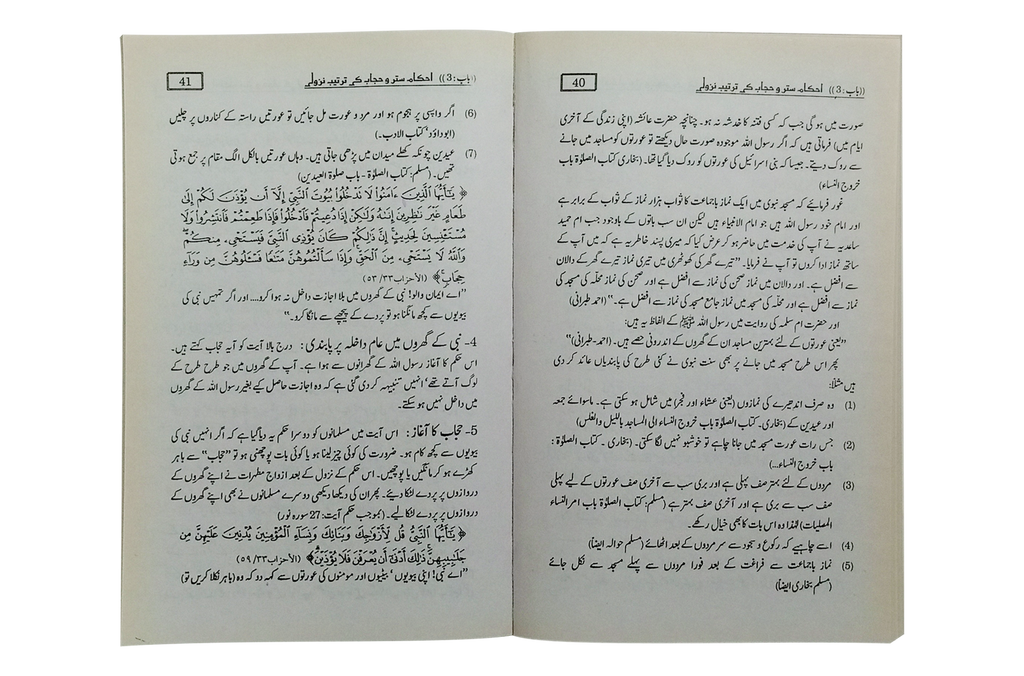 40
((باب:3)) احکام ستر و حجاب کے ترتیب نزولی
صورت میں ہو گی جب کہ کسی فتنہ کا خدشہ نہ ہو۔ چنانچہ حضرت عائشہ (اپنی زندگی کے آخری
ایام میں) فرماتی ہیں کہ اگر رسول اللہ موجودہ صورت حال دیکھتے تو عورتوں کو مساجد میں جانے
سے روک دیتے۔ جیسا کہ بنی اسرائیل کی عورتوں کو روک دیا گیا تھا۔ (بخاری کتاب الصلوٰۃ باب
خروج النساء)
غور فرمائیے کہ مسجد نبوی میں ایک نماز باجماعت کا ثواب ہزار نماز کے ثواب کے برابر ہے
اور امام خود رسول اللہ ہیں جو امام الانبیاء ہیں لیکن ان سب باتوں کے باوجود جب ام حمید
ساعدیہ نے آپ کی خدمت میں حاضر ہو کر عرض کیا کہ میری پسند خاطر یہ ہے کہ میں آپ کے
ساتھ نماز ادا کروں تو آپ نے فرمایا۔ "تیرے گھر کی کوٹھری میں تیری نماز تیرے گھر کے دالان
سے افضل ہے۔ اور دالان میں نماز صحن کی نماز سے افضل ہے اور صحن کی نماز محلہ کی مسجد کی
نماز سے افضل ہے اور محلّہ کی مسجد میں نماز جامع مسجد کی نماز سے افضل ہے۔" (احمد طبرانی)
اور حضرت ام سلمہ کی روایت میں رسول اللہ ﷺ کے الفاظ یہ ہیں:
"یعنی عورتوں کے لئے بہترین مساجد ان کے گھروں کے اندرونی حصے ہیں۔ (احمد۔ طبرانی)
پھر اس طرح مسجد میں جانے پر بھی سنت نبوی نے کئی طرح کی پابندیاں عائد کر دی
ہیں مثلاً:
(1) وہ صرف اندھیرے کی نمازوں (یعنی عشاء اور فجر) میں شامل ہو سکتی ہے۔ ماسوائے جمعہ
اور عیدین کے (بخاری۔ کتاب الصلوٰۃ باب خروج النساء الی المساجد باللیل والغلس)
(2) جس رات عورت مسجد میں جانا چاہے تو خوشبو نہیں لگا سکتی۔ (بخاری۔ کتاب الصلوٰۃ:
باب خروج النساء...)
(3) مردوں کے لئے بہتر صف پہلی ہے اور بری سب سے آخری صف عورتوں کے لیے پہلی
صف سب سے بری ہے اور آخری صف بہتر ہے (مسلم: کتاب الصلوٰۃ باب امر النساء
المصلیات) لہٰذا وہ اس بات کا بھی خیال رکھے۔
(4) اسے چاہیے کہ رکوع و سجود سے سر مردوں کے بعد اٹھائے (مسلم حوالہ ایضاً)
(5) نماز باجماعت سے فراغت کے بعد فورا مردوں سے پہلے مسجد سے نکل جائے
(مسلم بخاری ایضاً)
41
((باب:3)) احکام ستر و حجاب کے ترتیب نزولی
(6) اگر واپسی پر ہجوم ہو اور مرد و عورت مل جائیں تو عورتیں راستہ کے کناروں پر چلیں
(ابوداؤد' کتاب الادب۔)
(7) عیدین چونکہ کھلے میدان میں پڑھی جاتی ہیں۔ وہاں عورتیں بالکل الگ مقام پر جمع ہوتی
تھیں۔ (مسلم: کتاب الصلوٰۃ۔ باب صلوٰۃ العیدین)
﴿ يَـٰٓأَيُّهَا ٱلَّذِينَ ءَامَنُوا۟ لَا تَدْخُلُوا۟ بُيُوتَ ٱلنَّبِىِّ إِلَّآ أَن يُؤْذَنَ لَكُمْ إِلَىٰ
طَعَامٍ غَيْرَ نَـٰظِرِينَ إِنَىٰهُ وَلَـٰكِنْ إِذَا دُعِيتُمْ فَٱدْخُلُوا۟ فَإِذَا طَعِمْتُمْ فَٱنتَشِرُوا۟ وَلَا
مُسْتَـْٔنِسِينَ لِحَدِيثٍ ۚ إِنَّ ذَٰلِكُمْ كَانَ يُؤْذِى ٱلنَّبِىَّ فَيَسْتَحْىِۦ مِنكُمْ ۖ
وَٱللَّهُ لَا يَسْتَحْىِۦ مِنَ ٱلْحَقِّ ۚ وَإِذَا سَأَلْتُمُوهُنَّ مَتَـٰعًا فَسْـَٔلُوهُنَّ مِن وَرَآءِ
حِجَابٍ ﴾ (الأحزاب۳۳/ ۵۳)
"اے ایمان والو! نبی کے گھروں میں بلا اجازت داخل نہ ہوا کرو.... اور اگر تمہیں نبی کی
بیویوں سے کچھ مانگنا ہو تو پردے کے پیچھے سے مانگا کرو۔"
4- نبی کے گھروں میں عام داخلہ پر پابندی: درج بالا آیت کو آیہ حجاب کہتے ہیں۔
اس حکم کا آغاز رسول اللہ کے گھرانوں سے ہوا ہے۔ آپ کے گھروں میں جو طرح طرح کے
لوگ آتے تھے' انہیں تنبیہہ کر دی گئی ہے کہ وہ اجازت حاصل کیے بغیر رسول اللہ کے گھروں
میں داخل نہیں ہو سکتے۔
5- حجاب کا آغاز: اس آیت میں مسلمانوں کو دوسرا حکم یہ دیا گیا ہے کہ اگر انہیں نبی کی
بیویوں سے کچھ کام ہو۔ ضرورت کی کوئی چیز لینا ہو یا کوئی بات پوچھنی ہو تو "حجاب" سے باہر
کھڑے ہو کر مانگیں یا پوچھیں۔ اس حکم کے نزول کے بعد ازواج مطہرات نے اپنے گھروں کے
دروازوں پر پردے لٹکا دیئے۔ پھر ان کی دیکھا دیکھی دوسرے مسلمانوں نے بھی اپنے گھروں کے
دروازوں پر پردے لٹکا لیے۔ (بموجب حکم آیت:27 سورہ نور)
﴿ يَـٰٓأَيُّهَا ٱلنَّبِىُّ قُل لِّأَزْوَٰجِكَ وَبَنَاتِكَ وَنِسَآءِ ٱلْمُؤْمِنِينَ يُدْنِينَ عَلَيْهِنَّ مِن
جَلَـٰبِيبِهِنَّ ۚ ذَٰلِكَ أَدْنَىٰٓ أَن يُعْرَفْنَ فَلَا يُؤْذَيْنَ ﴾ (الأحزاب۳۳/ ۵۹)
"اے نبی! اپنی بیویوں' بیٹیوں اور مومنوں کی عورتوں سے کہہ دو کہ وہ (باہر نکلا کریں تو)